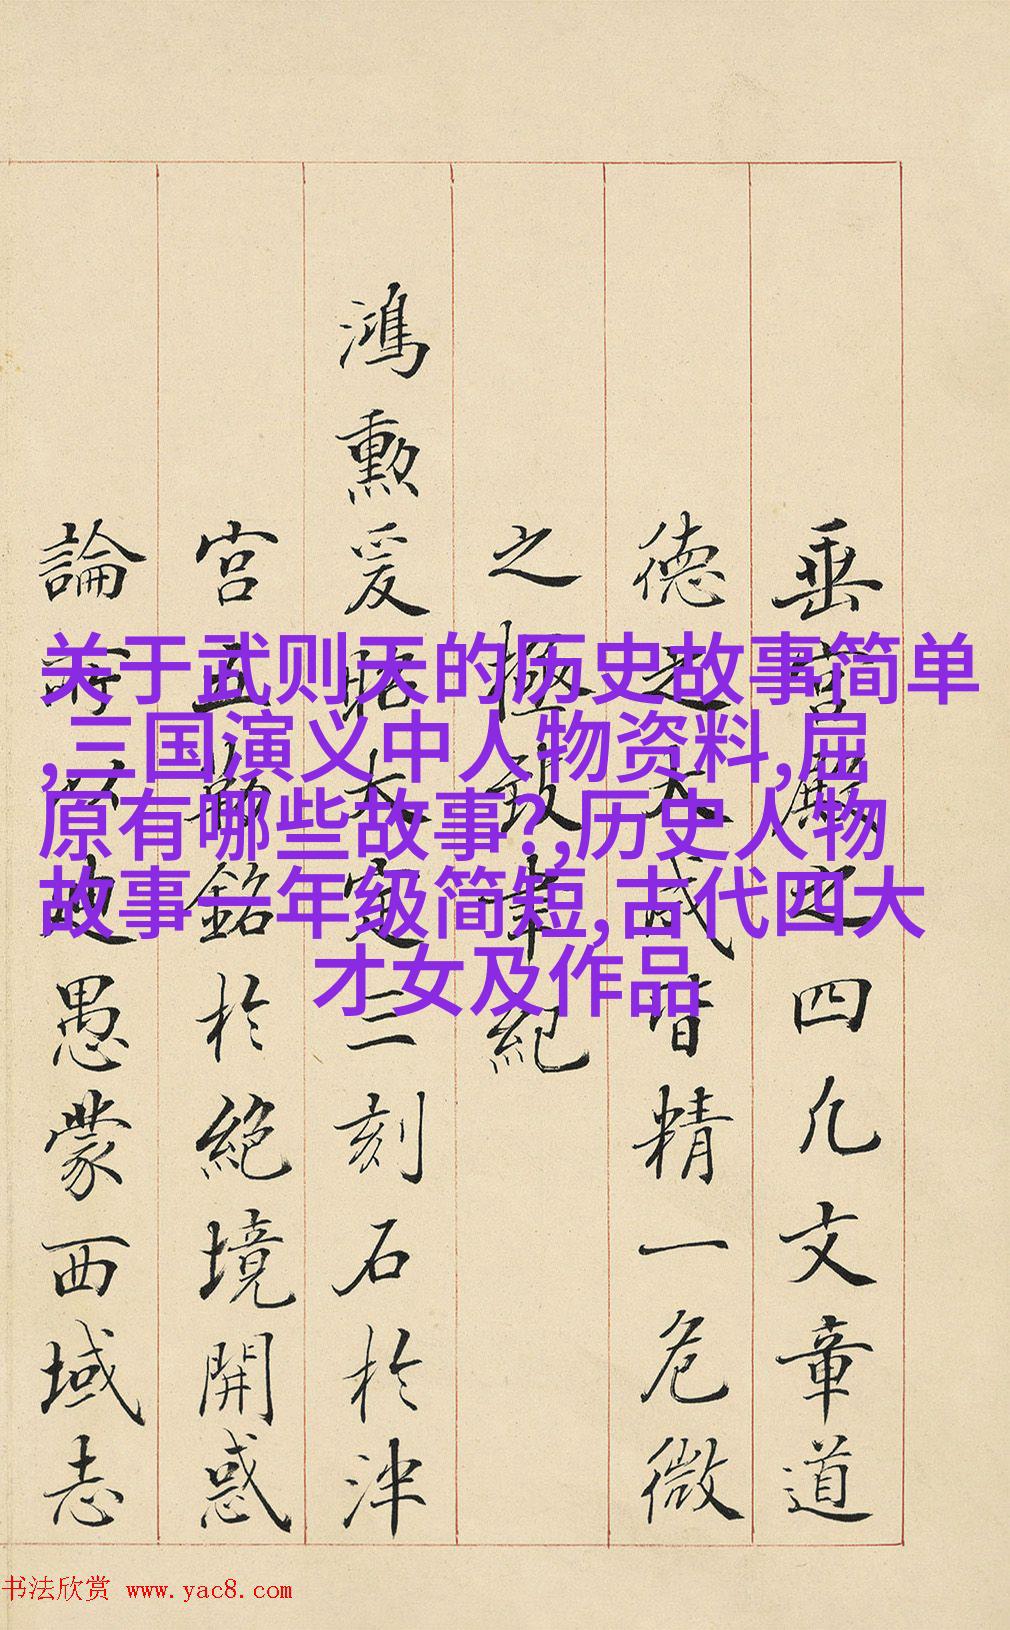 关于武则天的历史故事简单
,三国演义中人物资料,屈
原有哪些故事?,历史人物
故事一年级简短,古代四大
才女及作品
垂言之四凡文章道
德之大咸皆精一危微
之極致聿紀
鴻勳爰大定三刻石於津
宮五勒銘於絕境開惑
論所以愚蒙西域志
书法欣赏 www.yac8.com